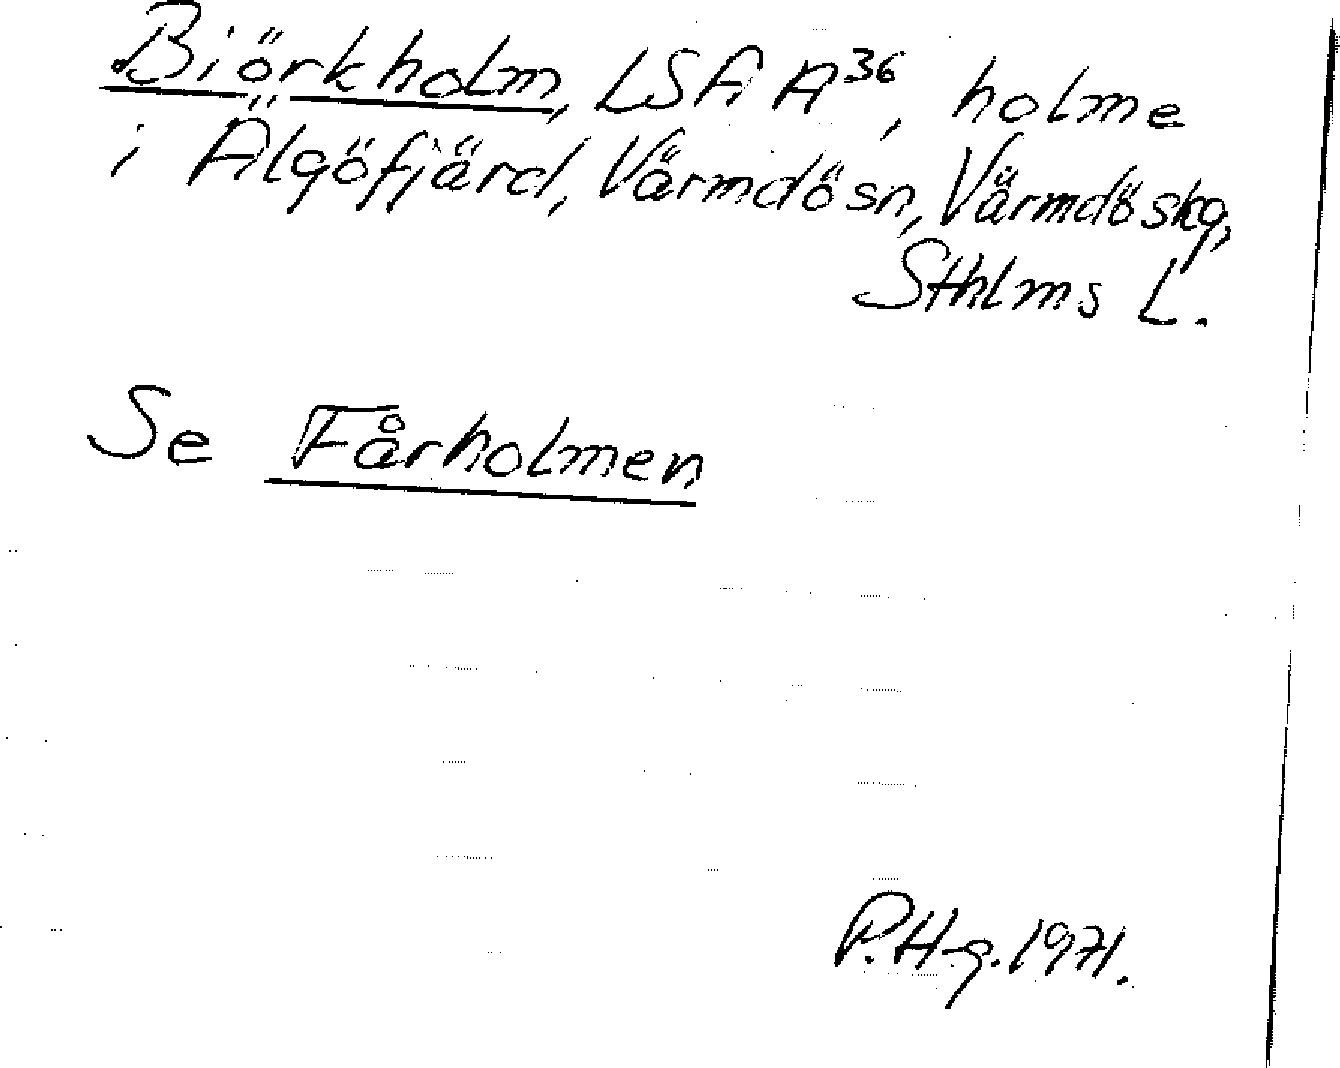 Biörkholm, LSA A36, holme
i Älgöfjärd, Värmdösn, Värmdöskg,
Sthlms L.
Se Fårholmen
P.H-g. 1971.